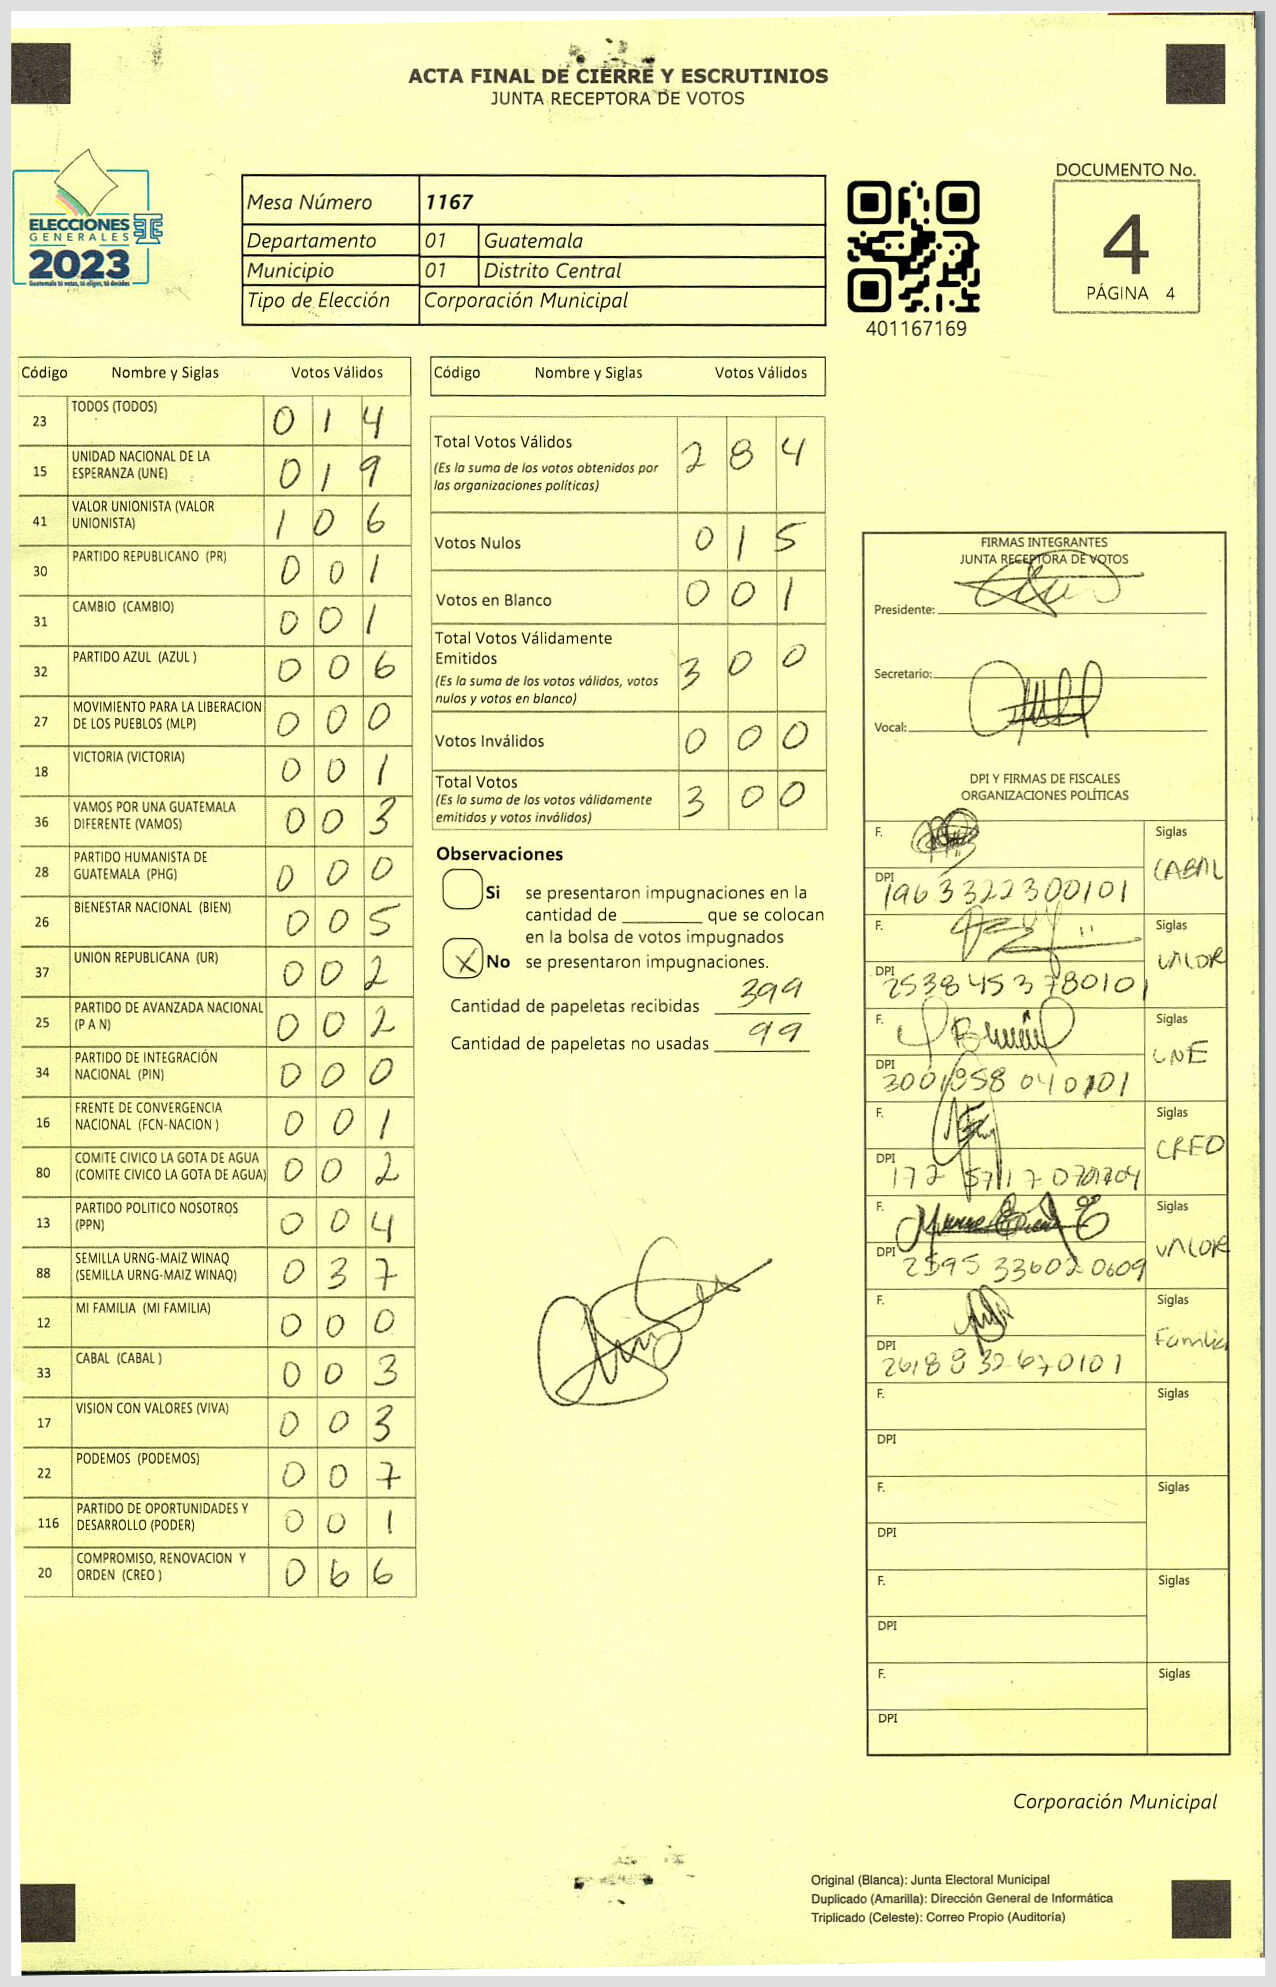 ACTA FINAL DE CIERRE Y ESCRUTINIOS
JUNTA RECEPTORA DE VOTOS
ELECCIONES
GENERALES
2023
Guatemala tú votas, tú eliges, tú decides
Mesa Número 1167
Departamento 01 Guatemala
Municipio 01 Distrito Central
Tipo de Elección Corporación Municipal
401167169
DOCUMENTO No.
4
PÁGINA 4
Código Nombre y Siglas Votos Válidos
23 TODOS (TODOS) 0 1 4
15 UNIDAD NACIONAL DE LA ESPERANZA (UNE) 0 1 9
41 VALOR UNIONISTA (VALOR UNIONISTA) 1 0 6
30 PARTIDO REPUBLICANO (PR) 0 0 1
31 CAMBIO (CAMBIO) 0 0 1
32 PARTIDO AZUL (AZUL ) 0 0 6
27 MOVIMIENTO PARA LA LIBERACION DE LOS PUEBLOS (MLP) 0 0 0
18 VICTORIA (VICTORIA) 0 0 1
36 VAMOS POR UNA GUATEMALA DIFERENTE (VAMOS) 0 0 3
28 PARTIDO HUMANISTA DE GUATEMALA (PHG) 0 0 0
26 BIENESTAR NACIONAL (BIEN) 0 0 5
37 UNION REPUBLICANA (UR) 0 0 2
25 PARTIDO DE AVANZADA NACIONAL (P A N) 0 0 2
34 PARTIDO DE INTEGRACIÓN NACIONAL (PIN) 0 0 0
16 FRENTE DE CONVERGENCIA NACIONAL (FCN-NACION ) 0 0 1
80 COMITE CIVICO LA GOTA DE AGUA (COMITE CIVICO LA GOTA DE AGUA) 0 0 2
13 PARTIDO POLITICO NOSOTROS (PPN) 0 0 4
88 SEMILLA URNG-MAIZ WINAQ (SEMILLA URNG-MAIZ WINAQ) 0 3 7
12 MI FAMILIA (MI FAMILIA) 0 0 0
33 CABAL (CABAL ) 0 0 3
17 VISION CON VALORES (VIVA) 0 0 3
22 PODEMOS (PODEMOS) 0 0 7
116 PARTIDO DE OPORTUNIDADES Y DESARROLLO (PODER) 0 0 1
20 COMPROMISO, RENOVACION Y ORDEN (CREO ) 0 6 6
Código Nombre y Siglas Votos Válidos
Total Votos Válidos 2 8 4
(Es la suma de los votos obtenidos por
las organizaciones políticas)
Votos Nulos 0 1 5
Votos en Blanco 0 0 1
Total Votos Válidamente
Emitidos 3 0 0
(Es la suma de los votos válidos, votos
nulos y votos en blanco)
Votos Inválidos 0 0 0
Total Votos 3 0 0
(Es la suma de los votos válidamente
emitidos y votos inválidos)
Observaciones
Si se presentaron impugnaciones en la
cantidad de ________ que se colocan
en la bolsa de votos impugnados
X No se presentaron impugnaciones.
Cantidad de papeletas recibidas 399
Cantidad de papeletas no usadas 99
FIRMAS INTEGRANTES
JUNTA RECEPTORA DE VOTOS
Presidente:
Secretario:
Vocal:
DPI Y FIRMAS DE FISCALES
ORGANIZACIONES POLÍTICAS
F. Siglas CABAL
DPI 1963322300101
F. Siglas VALOR
DPI 2538453780101
F. Siglas UNE
DPI
F. Siglas CREO
DPI
F. Siglas VALOR
DPI 2595336020609
F. Siglas Familia
DPI
F. Siglas
DPI
F. Siglas
DPI
F. Siglas
DPI
F. Siglas
DPI
Corporación Municipal
Original (Blanca): Junta Electoral Municipal
Duplicado (Amarilla): Dirección General de Informática
Triplicado (Celeste): Correo Propio (Auditoría)